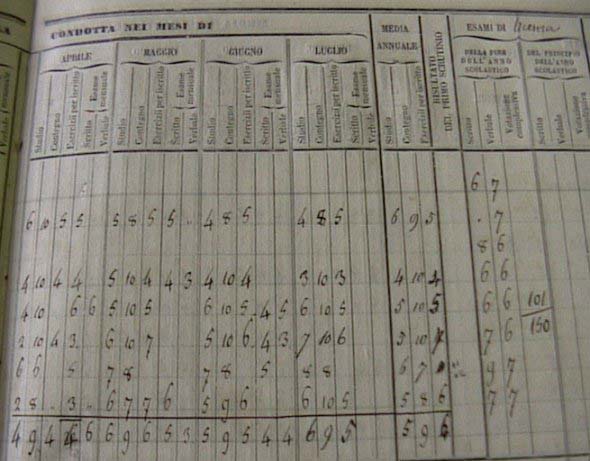 CONDOTTA NEI MESI DI
MEDIA ANNUALE
RISULTATO DEL PRIMO SCRUTINIO
ESAMI DI licenza
APRILE MAGGIO GIUGNO LUGLIO
DELLA FINE DELL'ANNO SCOLASTICO
DEL PRINCIPIO DELL'ANNO SCOLASTICO
Studio Contegno Esercizi per iscritto Esame mensuale Scritto Verbale
Studio Contegno Esercizi per iscritto Esame mensuale Scritto Verbale
Studio Contegno Esercizi per iscritto Esame mensuale Scritto Verbale
Studio Contegno Esercizi per iscritto Esame mensuale Scritto Verbale
Studio Contegno Esercizi per iscritto
Scritto Verbale Votazione complessiva Scritto Verbale Votazione complessiva
6 7
6 10 5 5 5 8 5 5 4 8 5 4 8 5 6 9 5 7
8 6
4 10 4 4 5 10 4 4 3 4 10 4 3 10 3 4 10 4 6 6
4 10 6 6 5 10 5 6 10 5 4 5 6 10 5 5 10 5 6 6 101/150
2 10 4 3 6 10 7 5 10 6 4 3 7 10 6 5 10 7 6
6 6 5 7 8 7 8 5 8 8 6 7 9 7
2 8 3 6 7 7 6 5 9 6 6 10 5 5 8 6 7 7
4 9 4 6 6 6 9 6 5 3 5 9 5 4 4 6 9 5 5 9 6